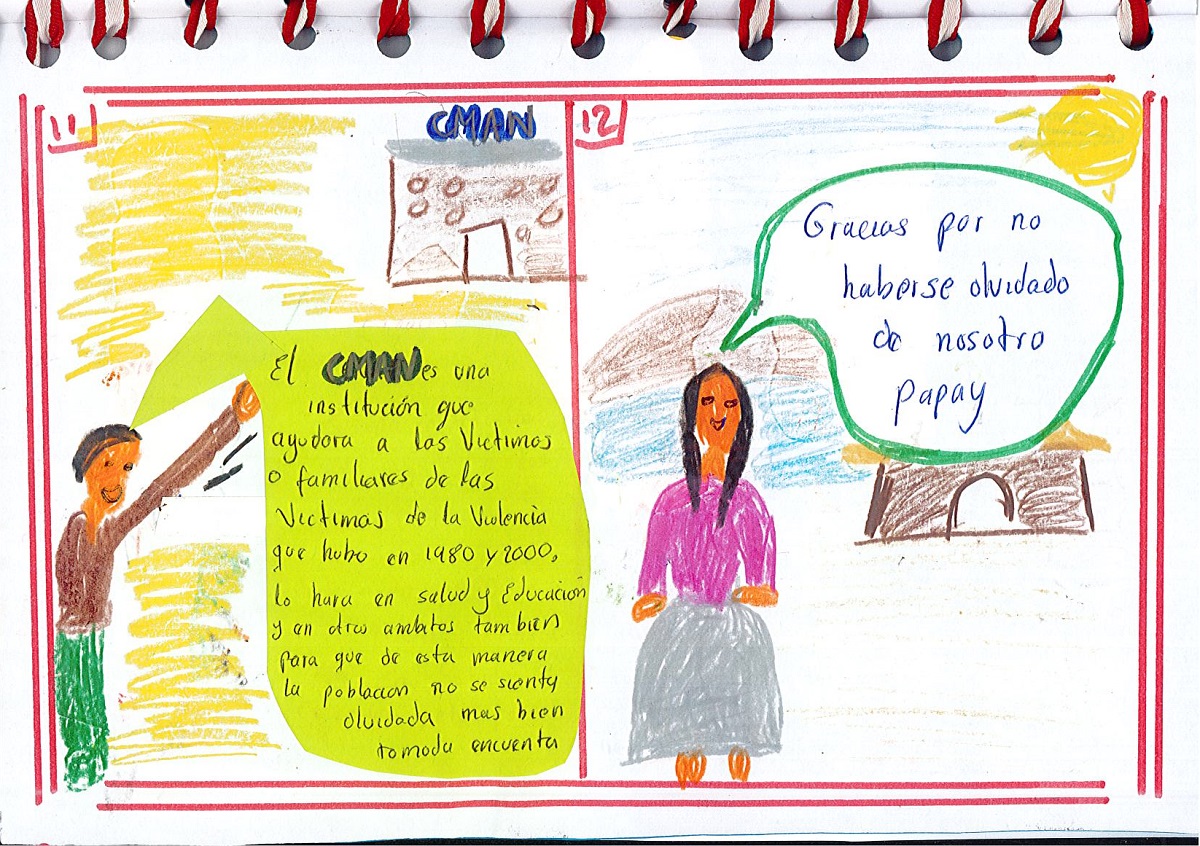 11
CMAN
El CMAN es una
institución que
ayudora a las Victimas
o familiares de las
Victimas de la Violencia
que hubo en 1980 y 2000,
lo hara en salud y Educación
y en otros ambitos tambien
para que de esta manera
la poblacion no se sienty
olvidada mas bien
tomoda encuenta
12
Gracias por no
haberse olvidado
de nosotro
papay